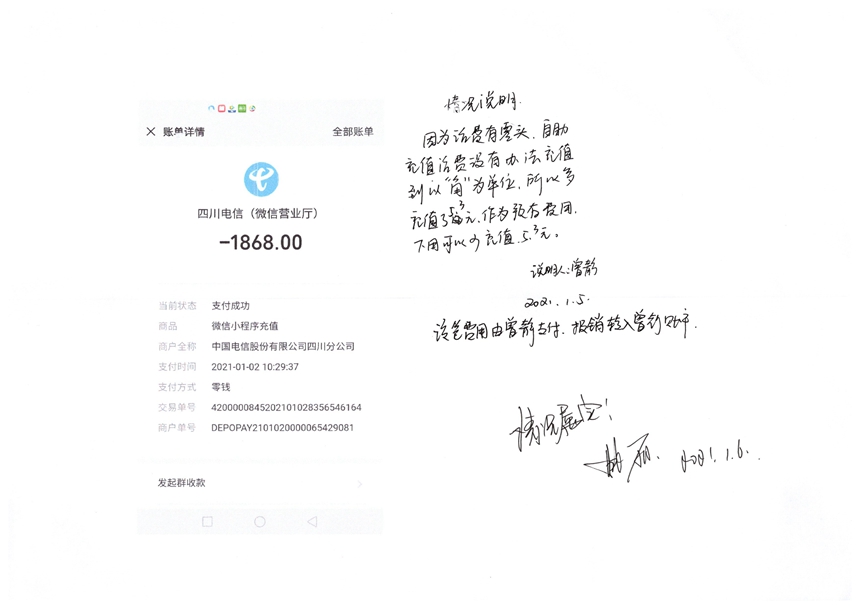 账单详情
全部账单
四川电信（微信营业厅）
-1868.00
当前状态 支付成功
商品 微信小程序充值
商户全称 中国电信股份有限公司四川分公司
支付时间 2021-01-02 10:29:37
支付方式 零钱
交易单号 4200000845202101028356546164
商户单号 DEPOPAY2101020000065429081
发起群收款
情况说明
因为话费有零头，自助
充值话费没有办法充值
到以“角”为单位，所以多
充值了5.3元，作为预存费用，
下月可以少充值5.3元。
说明人：曾静
2021.1.5.
该笔费用由曾静支付，报销转入曾静账户.
情况属实！
丽. 2021.1.6.